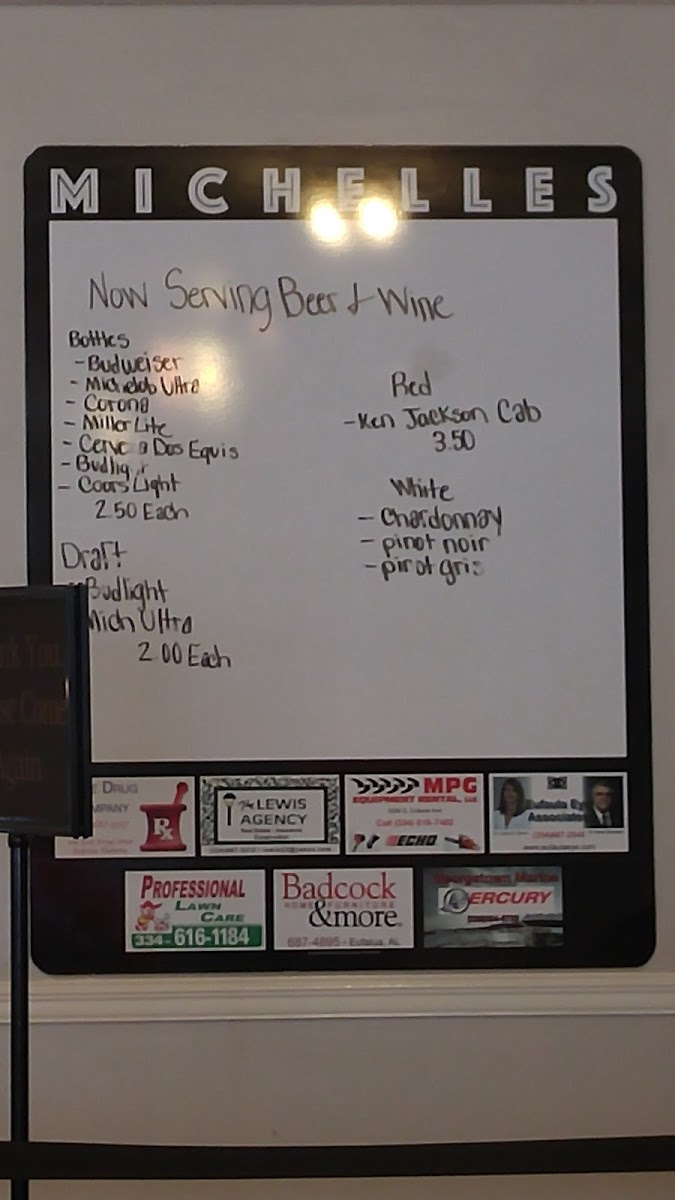 MICHELLES
Now Serving Beer & Wine
Bottles
- Budweiser
- Michelob Ultra
- Corona
- Miller Lite
- Dos Equis
- Budlight
- Coors Light
2.50 Each
Draft
Budlight
Mich Ultra
2.00 Each
Red
- Ken Jackson Cab
3.50
White
- Chardonnay
- pinot noir
- pinot gris
Again
DRUG
Rx
The LEWIS
AGENCY
MPG
EQUIPMENT RENTAL, LLC
ECHO
Eufaula Ey
Associate
PROFESSIONAL
LAWN
CARE
334-616-1184
Badcock
HOME FURNITURE
&more
687-4895 • Eufaula, AL
Georgetown Marine
MERCURY